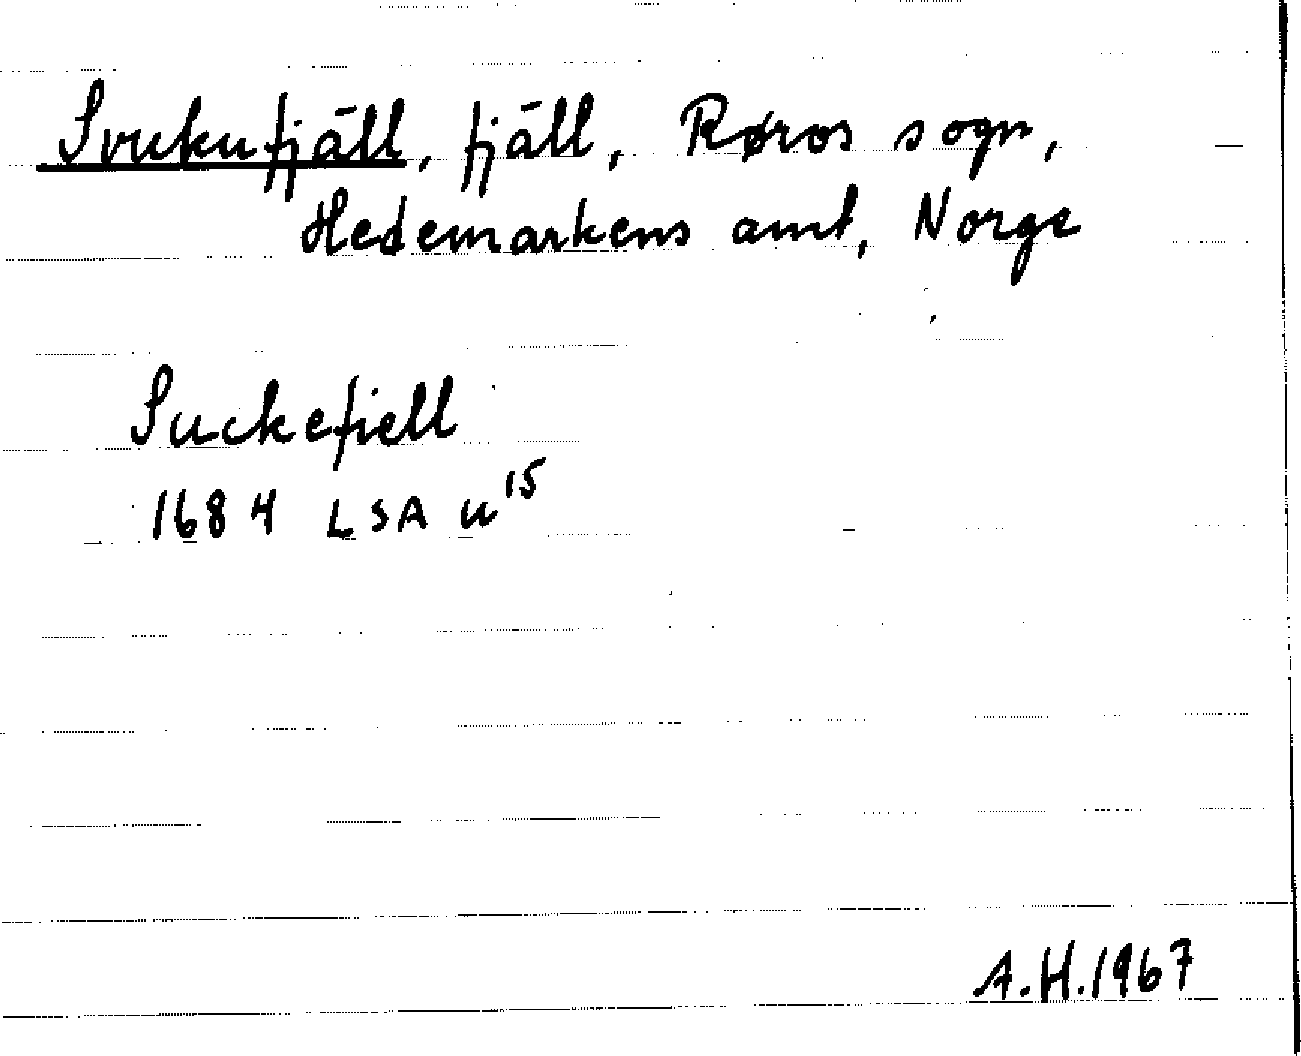 Svukufjäll, fjäll, Røros sogn,
Hedemarkens amt, Norge
Suckefiell
1684 LSA u¹⁵
A.H.1967